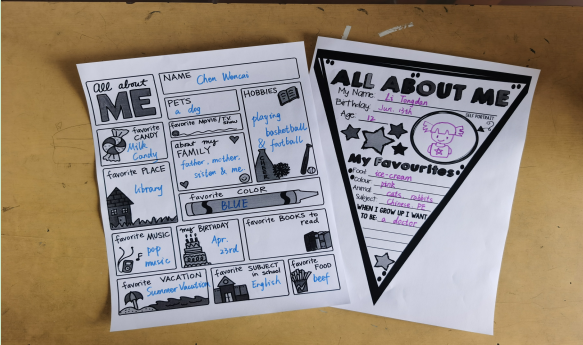 All about
ME
NAME Chen Wancai
PETS
a dog
HOBBIES
playing
basketball
& football
favorite CANDY
Milk
Candy
favorite MOVIE/TV Show
about my
FAMILY
father, mother,
sister & me
favorite PLACE
library
favorite COLOR
BLUE
favorite MUSIC
pop
music
my BIRTHDAY
Apr.
23rd
favorite BOOKS to
read
favorite VACATION
Summer Vacation
favorite SUBJECT
in school
English
favorite FOOD
beef
ALL ABOUT ME
My Name: Li Tongdan
Birthday
Age: 12
SELF PORTRAIT
My Favourites
Food ice-cream
Colour pink
Animal cats, rabbits
Subject Chinese, PE
WHEN I GROW UP I WANT
TO BE: a doctor